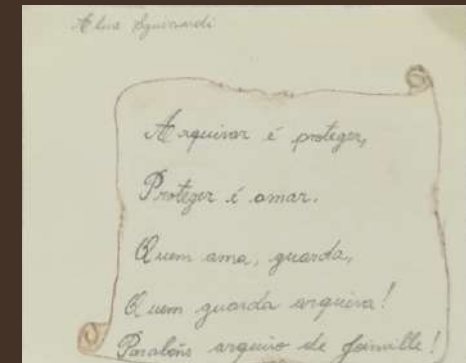 Arquivar é proteger,
Proteger é amar.
Quem ama, guarda,
Quem guarda arquiva!
Parabéns arquivo de Joinville!